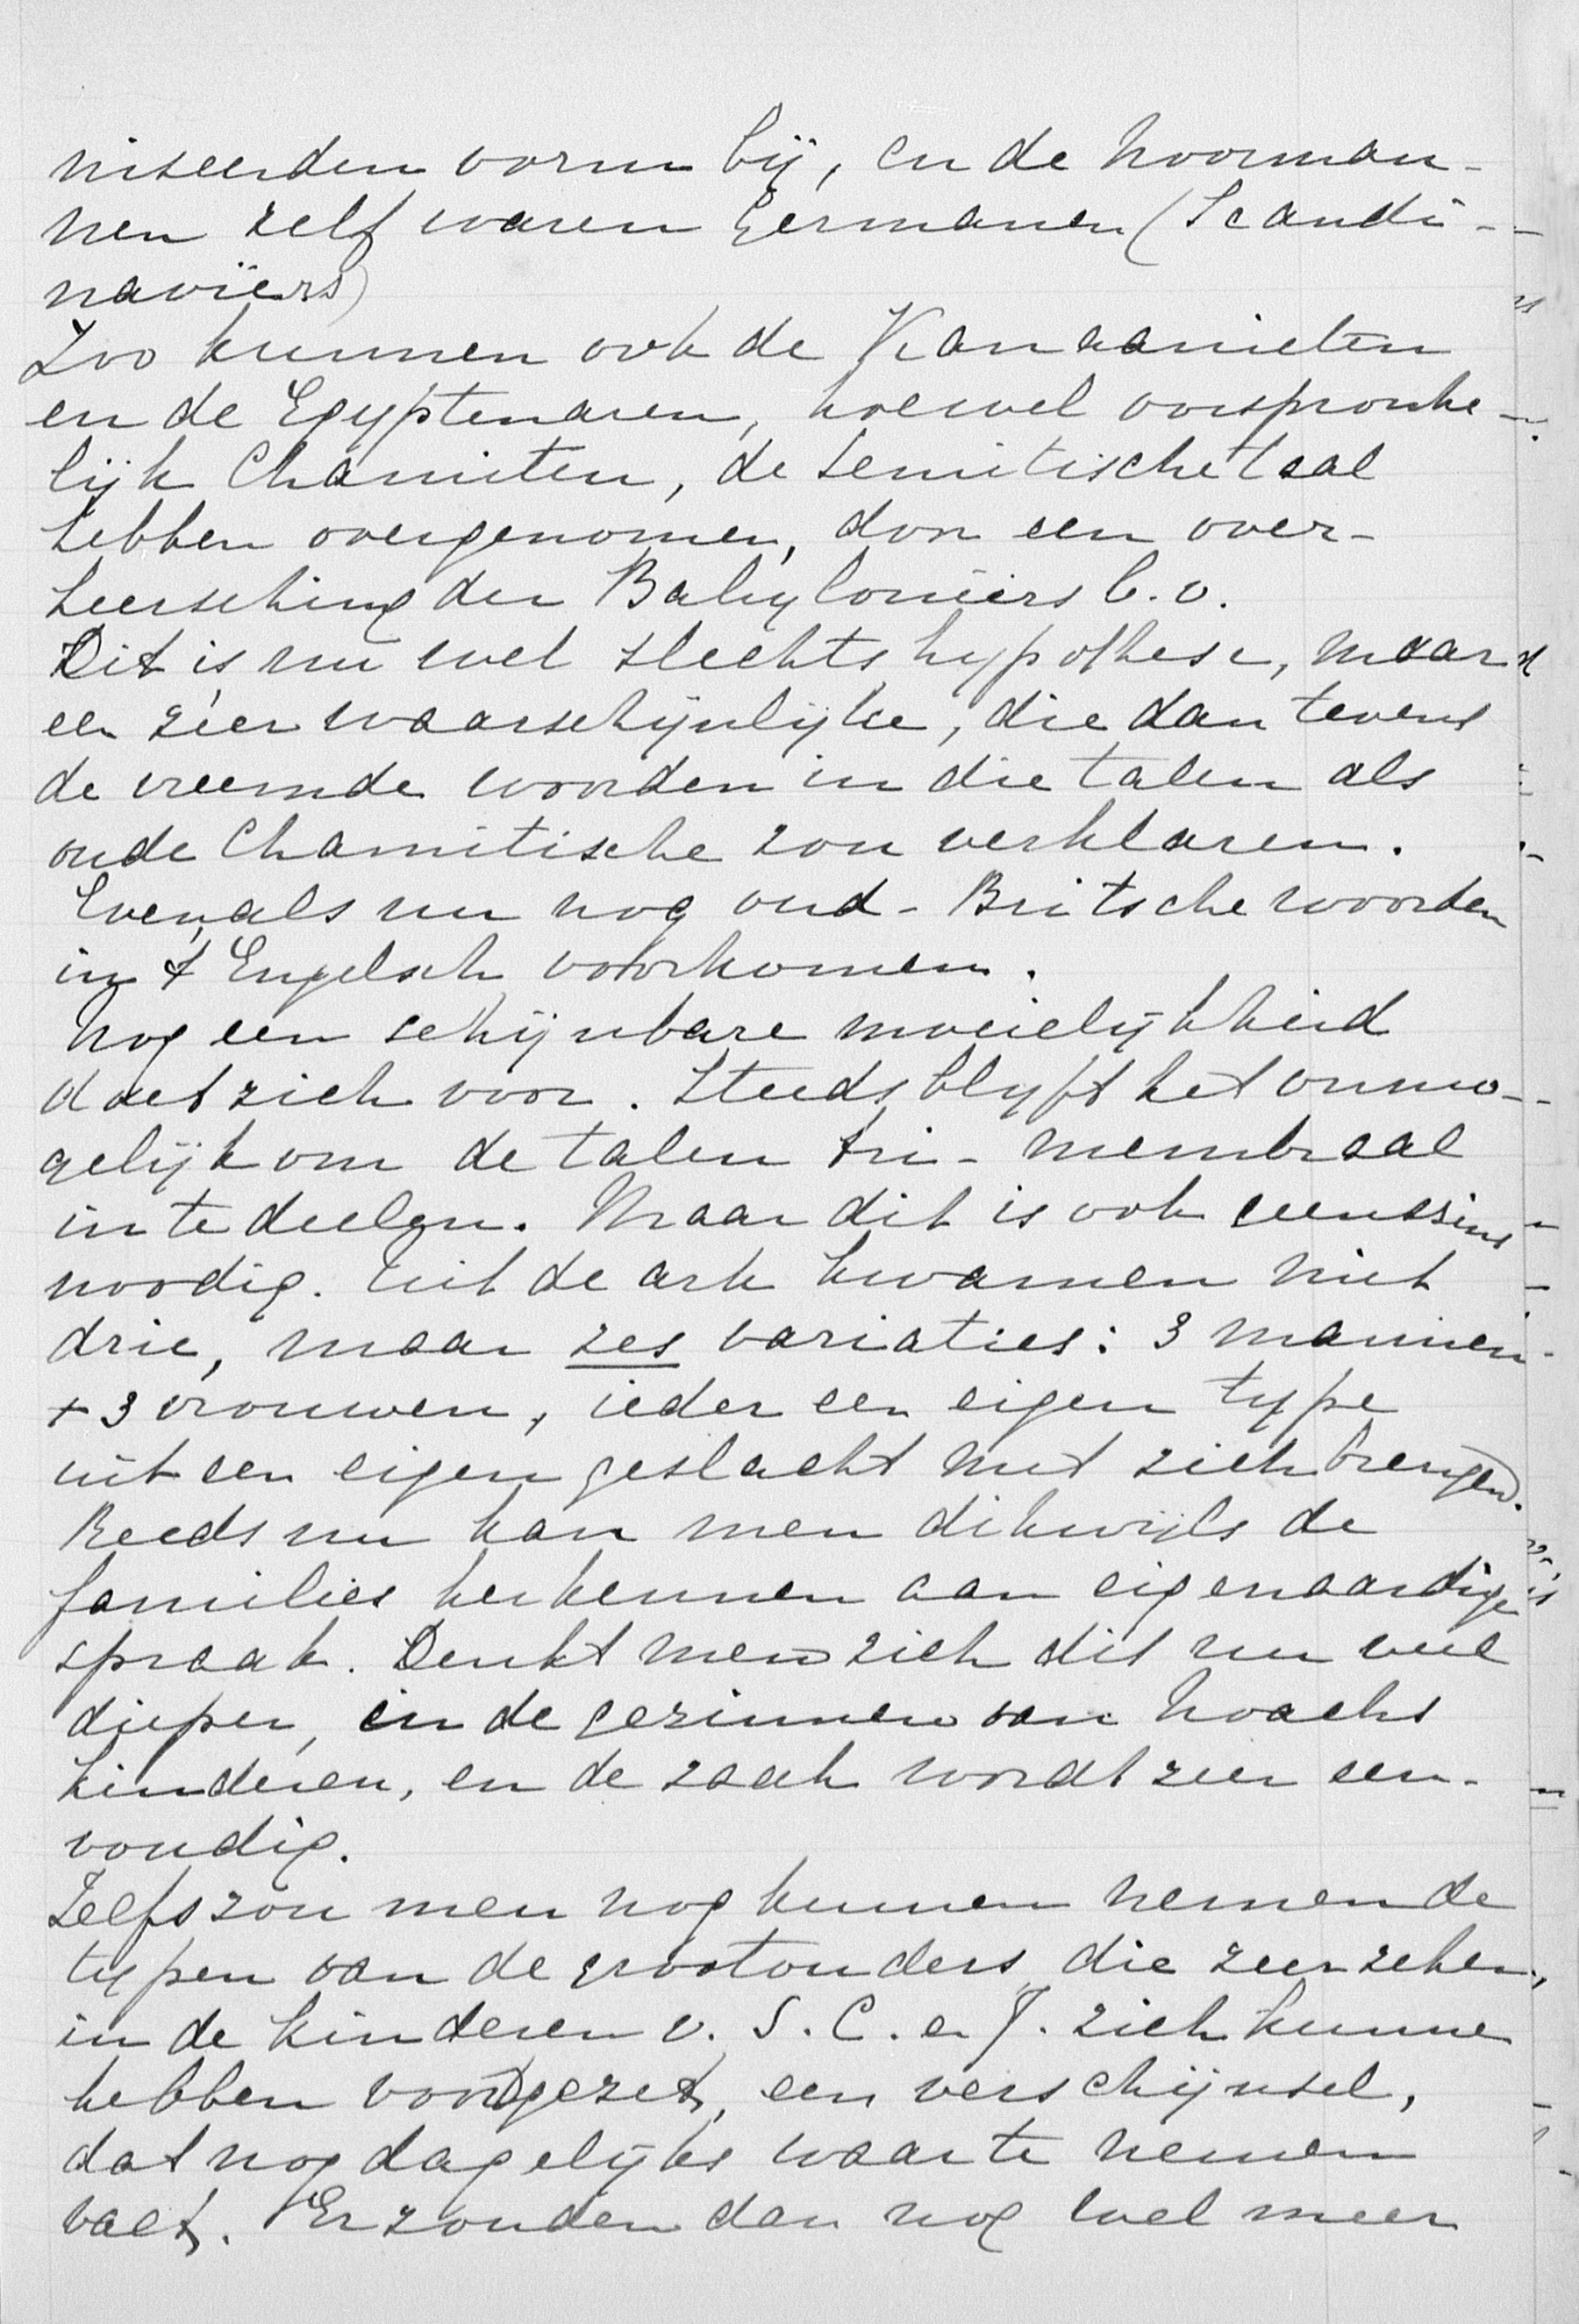 niseerden vorm bij, en de Noorman-
nen zelf waren Germanen (Scandi-
naviërs)
Zoo kunnen ook de Kanaanieten
en de Egyptenaren, hoewel oorspronke-
lijk Chamiten, de Semitische taal
hebben overgenomen, door een over-
heersching der Babyloniërs b.v.
Dit is nu wel slechts hypothese, maar
een zéér waarschijnlijke, die dan tevens
de vreemde woorden in die talen als
oude Chamitische zou verklaren.
Evenals nu nog oud-Britsche woorden
in 't Engelsch voorkomen.
Nog een schijnbare moeielijkheid
doet zich voor. Steeds blijft het onmo-
gelijk om de talen tri-membraal
in te deelen. Maar dit is ook geenszins
noodig. Uit de ark kwamen niet
drie, maar zes variaties: 3 mannen
+ 3 vrouwen, ieder een eigen type
uit een eigen geslacht met zich brengend.
Reeds nu kan men dikwijls de
families herkennen aan eigenaardige
spraak. Denkt men zich dit nu veel
dieper, in de gezinnen van Noachs
kinderen, en de zaak wordt zeer een-
voudig.
Zelfs zou men nog kunnen nemen de
typen van de grootouders die zeer zeker,
in de kinderen v. S. C. en J. zich kunnen
hebben voortgezet, een verschijnsel,
dat nog dagelijks waar te nemen
valt. Er zouden dan nog wel meer